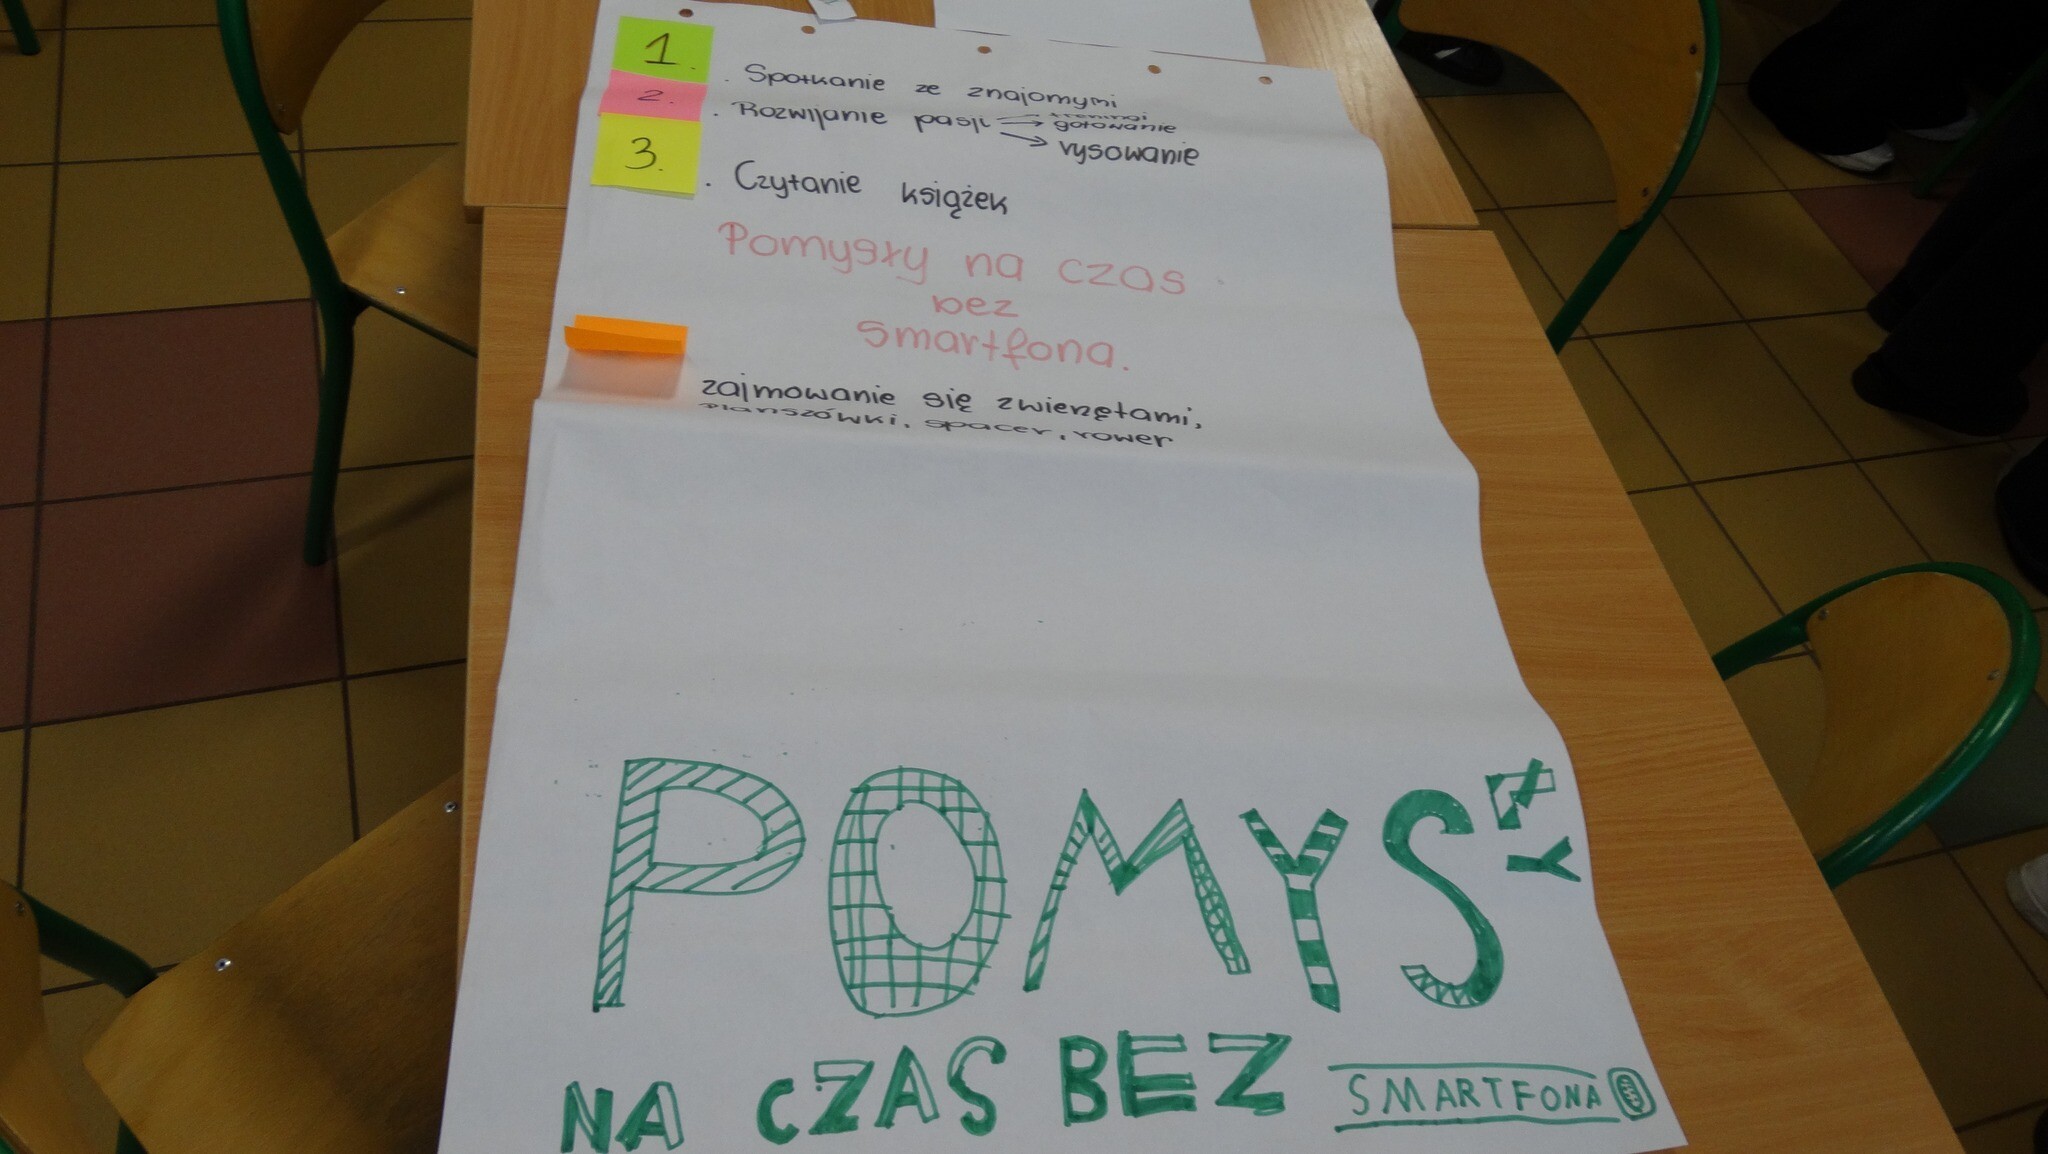 1. . Spotkanie ze znajomymi
treningi
2. . Rozwijanie pasji → gotowanie
→ rysowanie
3. . Czytanie książek
Pomysły na czas
bez
smartfona.
zajmowanie się zwierzętami,
planszówki, spacer, rower
POMYSŁY
NA CZAS BEZ SMARTFONA